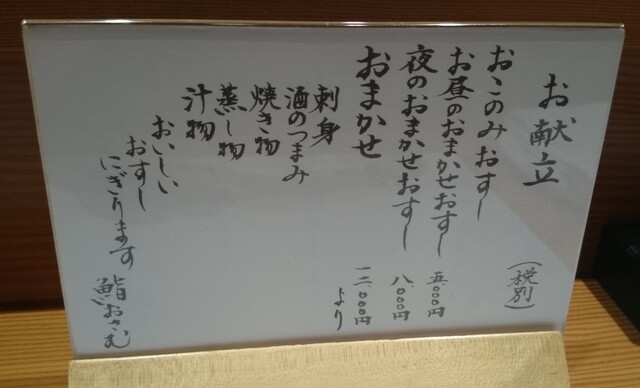 お献立
(税別)
おこのみおすし
お昼のおまかせおすし 五、〇〇〇円
夜のおまかせおすし 八、〇〇〇円
おまかせ 一二、〇〇〇円より
刺身
酒のつまみ
焼き物
蒸し物
汁物
おいしい
おすし
にぎります
鮨おさむ